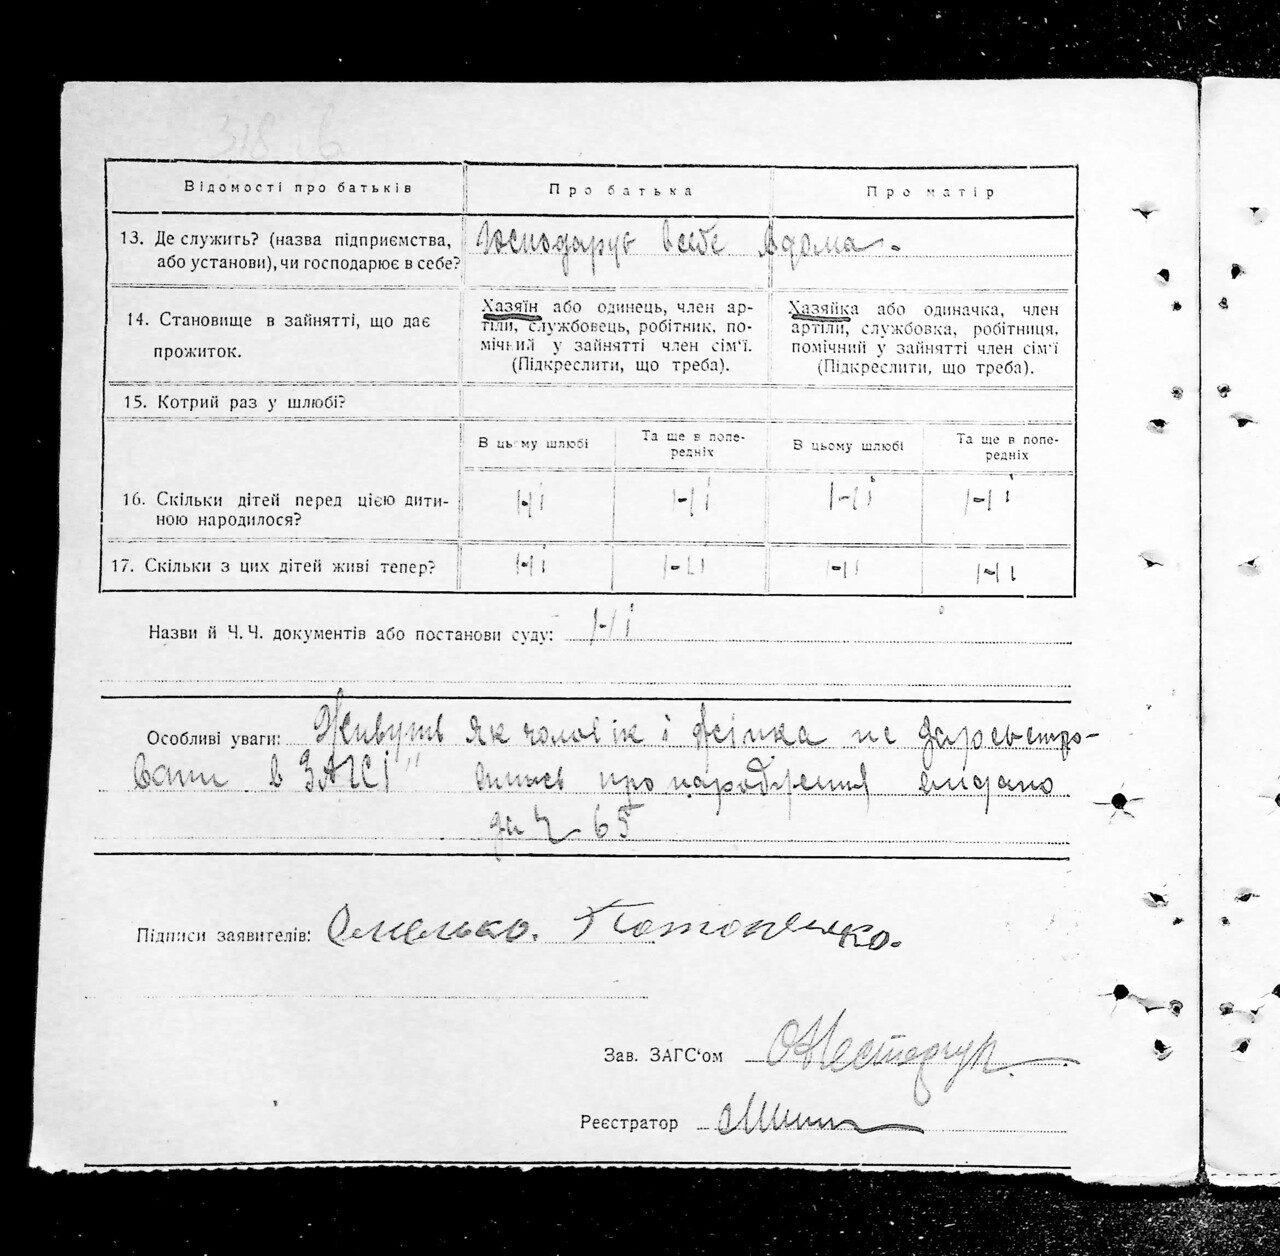 318 в
Відомості про батьків Про батька Про матір
13. Де служить? (назва підприємства,
або установи), чи господарює в себе?
Господарує в себе вдома.
14. Становище в зайнятті, що дає
прожиток.
Хазяїн або одинець, член ар-
тіли, службовець, робітник, по-
мічний у зайнятті член сім'ї.
(Підкреслити, що треба).
Хазяйка або одиначка, член
артіли, службовка, робітниця,
помічний у зайнятті член сім'ї
(Підкреслити, що треба).
15. Котрий раз у шлюбі?
В цьому шлюбі
Та ще в попе-
редніх
В цьому шлюбі
Та ще в попе-
редніх
16. Скільки дітей перед цією дити-
ною народилося?
Ні Ні Ні Ні
17. Скільки з цих дітей живі тепер? Ні Ні Ні Ні
Назви й Ч. Ч. документів або постанови суду: Ні
Особливі уваги: Живуть як чоловік і жінка не зареєстро-
вани в ЗАГСі" про народження видано
за Ч 65
Підписи заявителів: Омелько. Потопенко.
Зав. ЗАГС'ом ОНестерчук.
Реєстратор